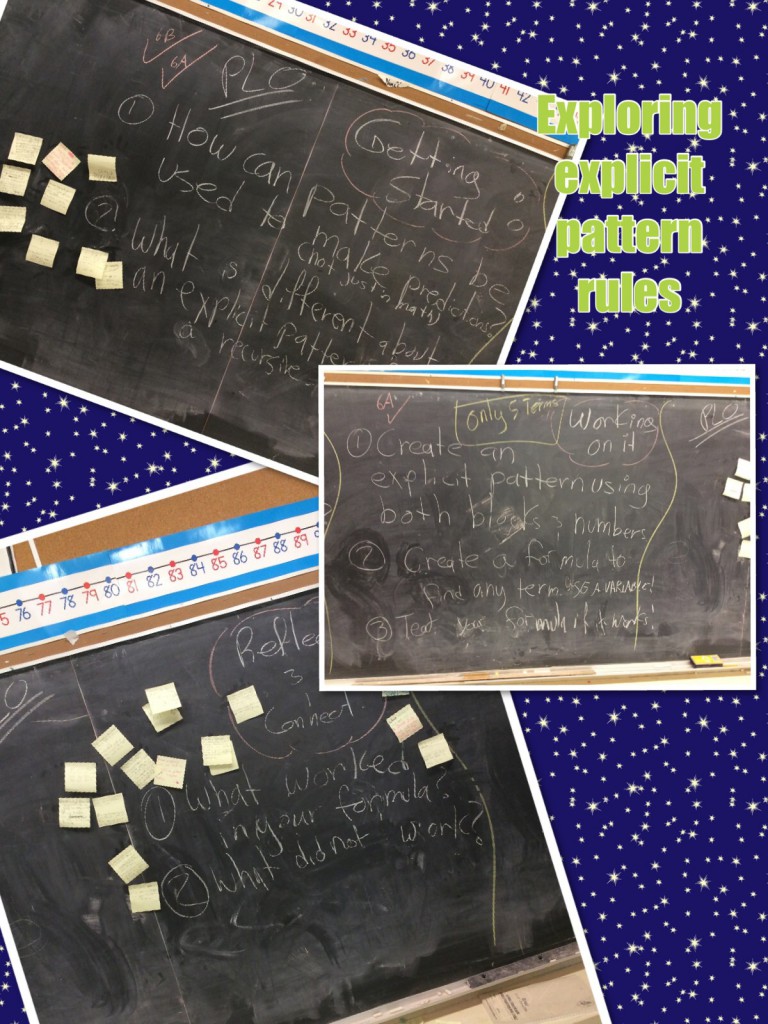 Exploring
explicit
pattern
rules
29 30 31 32 33 34 35 36 37 38 39 40 41 42
6B
6A
PLO
Getting
Started
① How can patterns be
used to make predictions?
(not just in math)
② What is different about
an explicit pattern
a recursive
6A
Only 5 Terms
Working
on it
PLO
① Create an
explicit pattern using
both blocks & numbers
② Create a formula to
find any term. USE A VARIABLE!
③ Test your formula if it works!
76 77 78 79 80 81 82 83 84 85 86 87 88 89
Connect
① What worked
in your formula?
② What did not work?